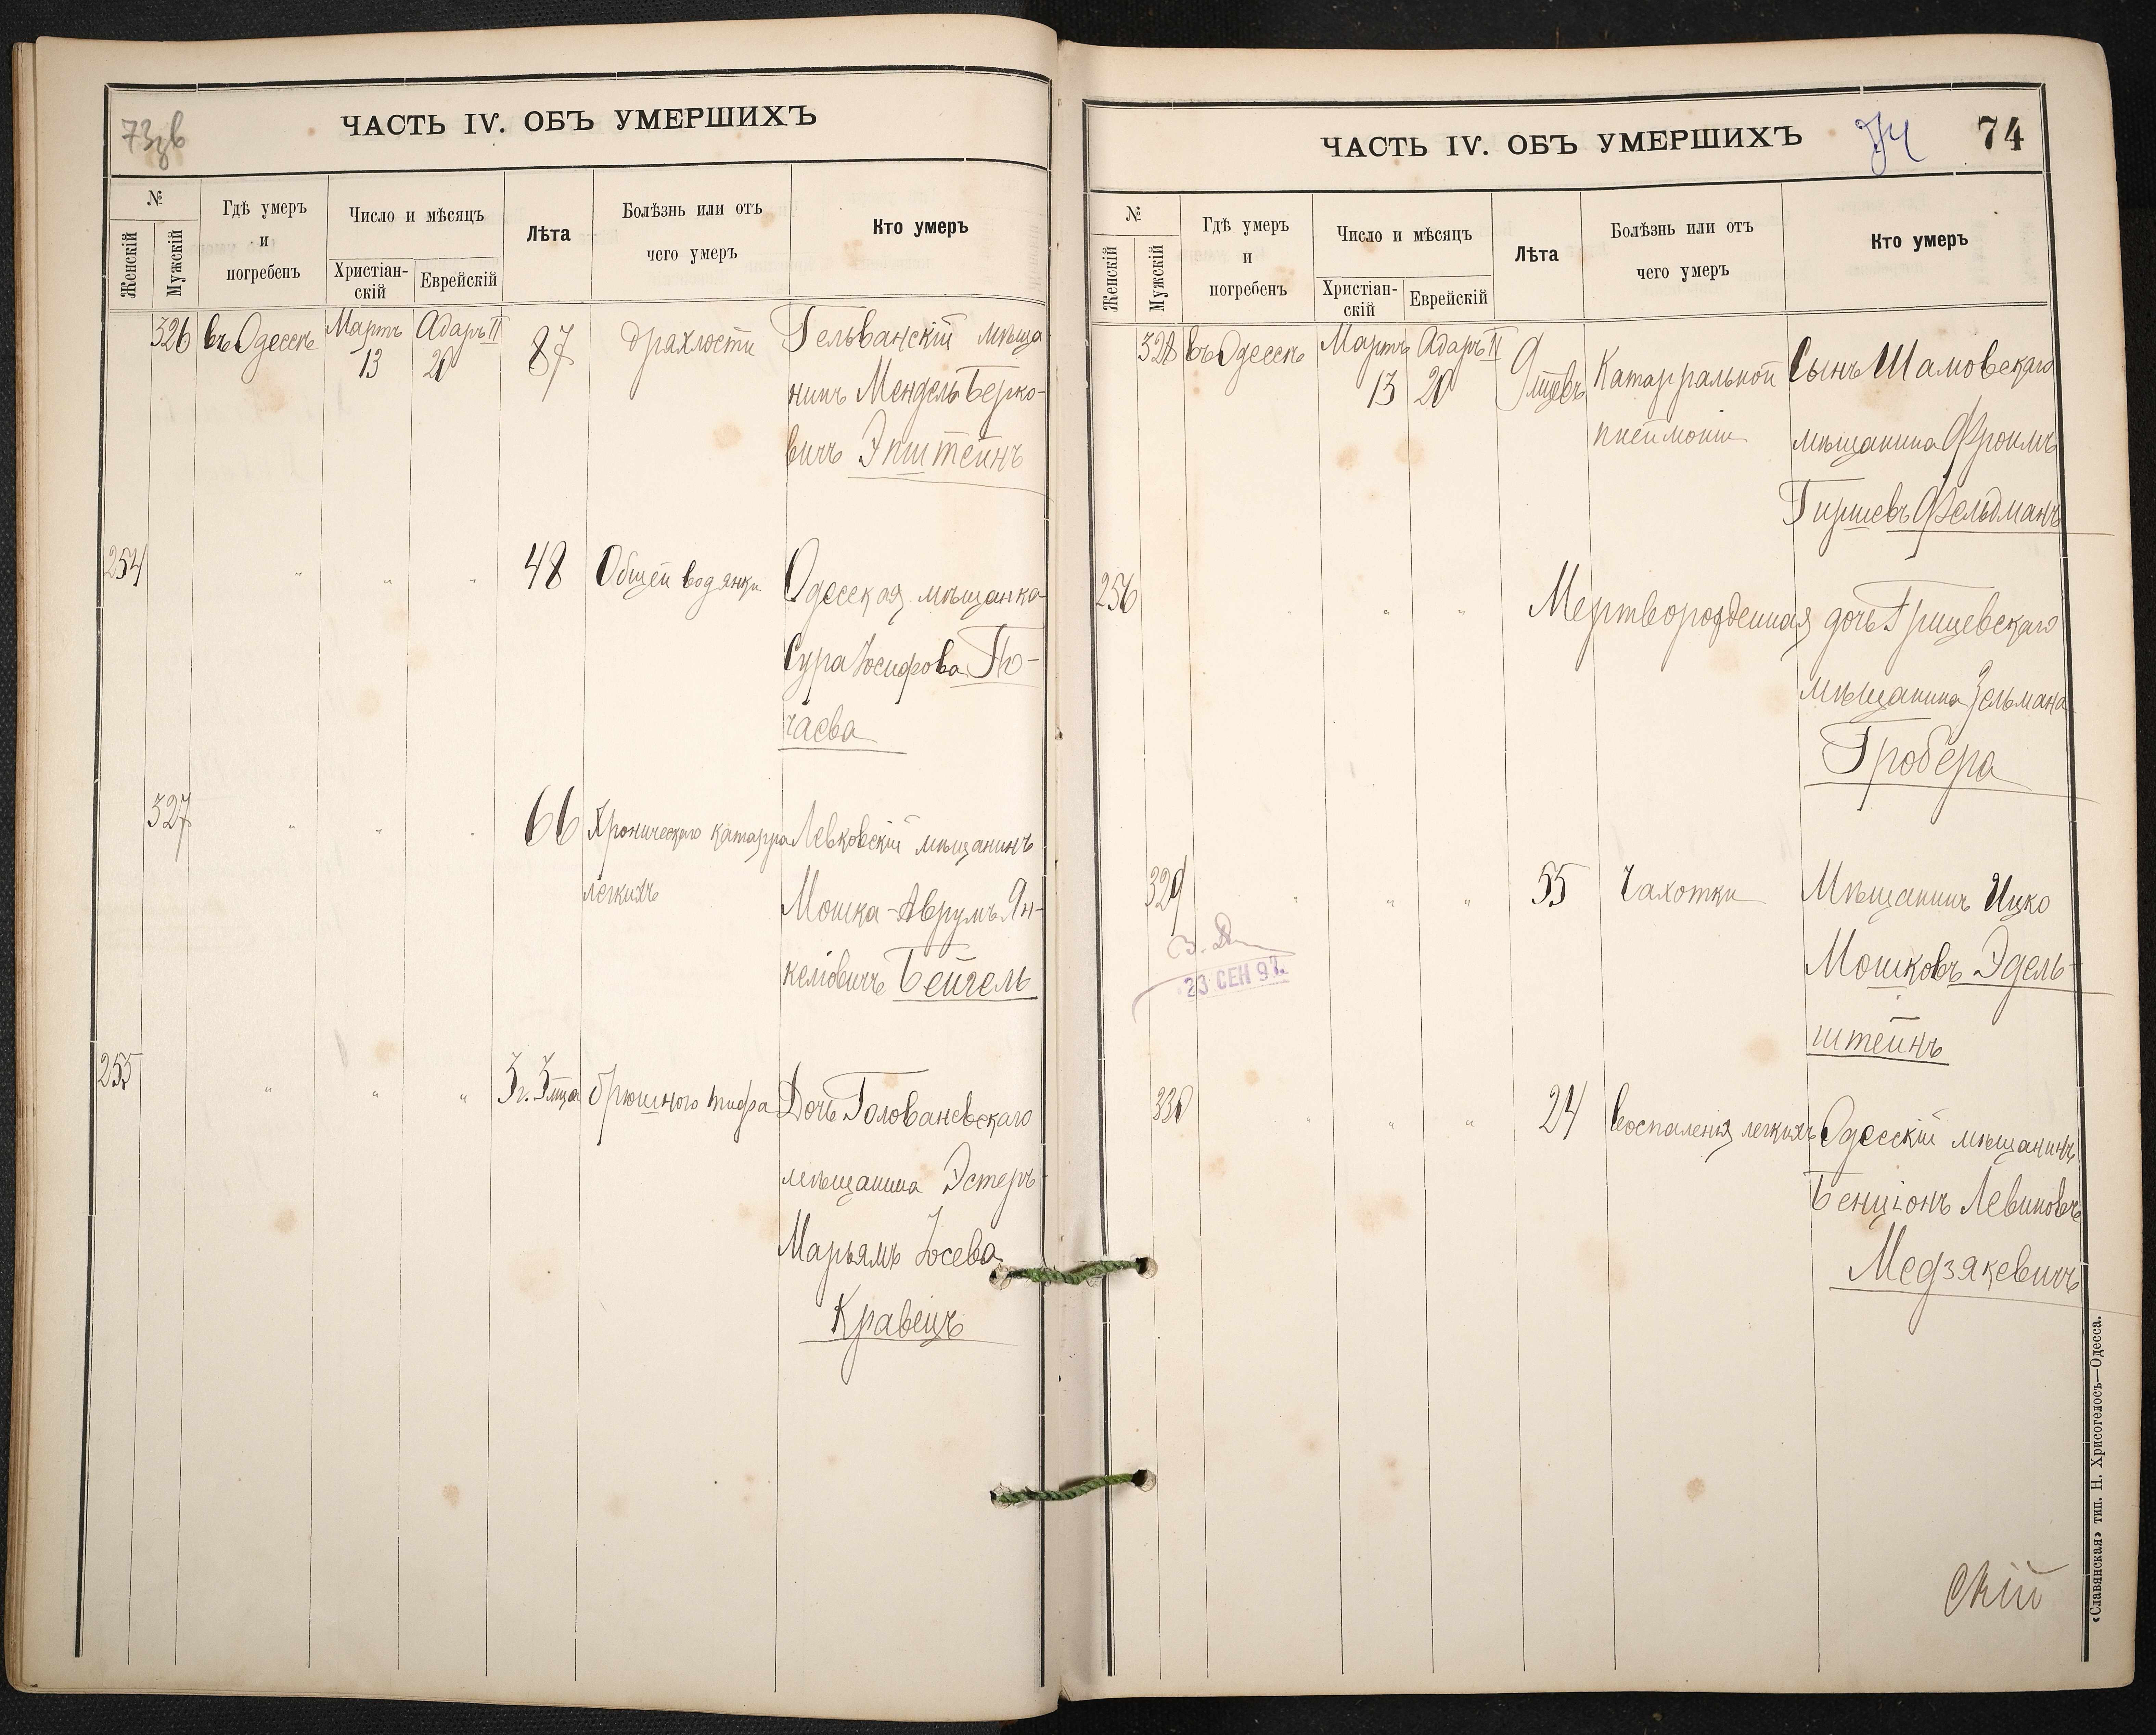 73зв
ЧАСТЬ IV. ОБЪ УМЕРШИХЪ
№
Женскій
Мужскій
Гдѣ умеръ
и
погребенъ
Число и мѣсяцъ
Христіан-
скій
Еврейскій
Лѣта
Болѣзнь или отъ
чего умеръ
Кто умеръ
326 въ Одессѣ Мартъ 13 Адаръ II 20 87 дряхлости Гельванскій мѣща
нинъ Мендель Берко-
вичъ Эпштейнъ
254 " " " 48 Общей водянки Одесская мѣщанка
Сура Іосифова По-
чаева
327 " " " 66 Хроническаго катарра Левковскій мѣщанинъ
легкихъ Мошка-Аврумъ Ян-
келіовичъ Бейгель
255 " " " 3 г. 3 мца брюшного тифа Дочь Голованевскаго
мѣщанина Эстеръ-
Марьямъ Іосева
Кравецъ
ЧАСТЬ IV. ОБЪ УМЕРШИХЪ
74
74
№
Женскій
Мужскій
Гдѣ умеръ
и
погребенъ
Число и мѣсяцъ
Христіан-
скій
Еврейскій
Лѣта
Болѣзнь или отъ
чего умеръ
Кто умеръ
328 въ Одессѣ Мартъ 13 Адаръ II 20 9 мцевъ Катарральной Сынъ Шамовскаго
пнеймоніи мѣщанина Фроимъ
Гиршевъ Фельдманъ
256 " " " Мертворожденная дочь Грицевскаго
мѣщанина Зельмана
Гробера
329 " " " 55 Чахотки Мѣщанинъ Ицко
Мошковъ Эдель-
штейнъ
23 СЕН 97.
330 " " " 24 воспаленія легкихъ Одесскій мѣщанинъ
Бенціонъ Левиковъ
Медзякевичъ
скій
«Славянская» тип. Н. Хрисогелосъ—Одесса.